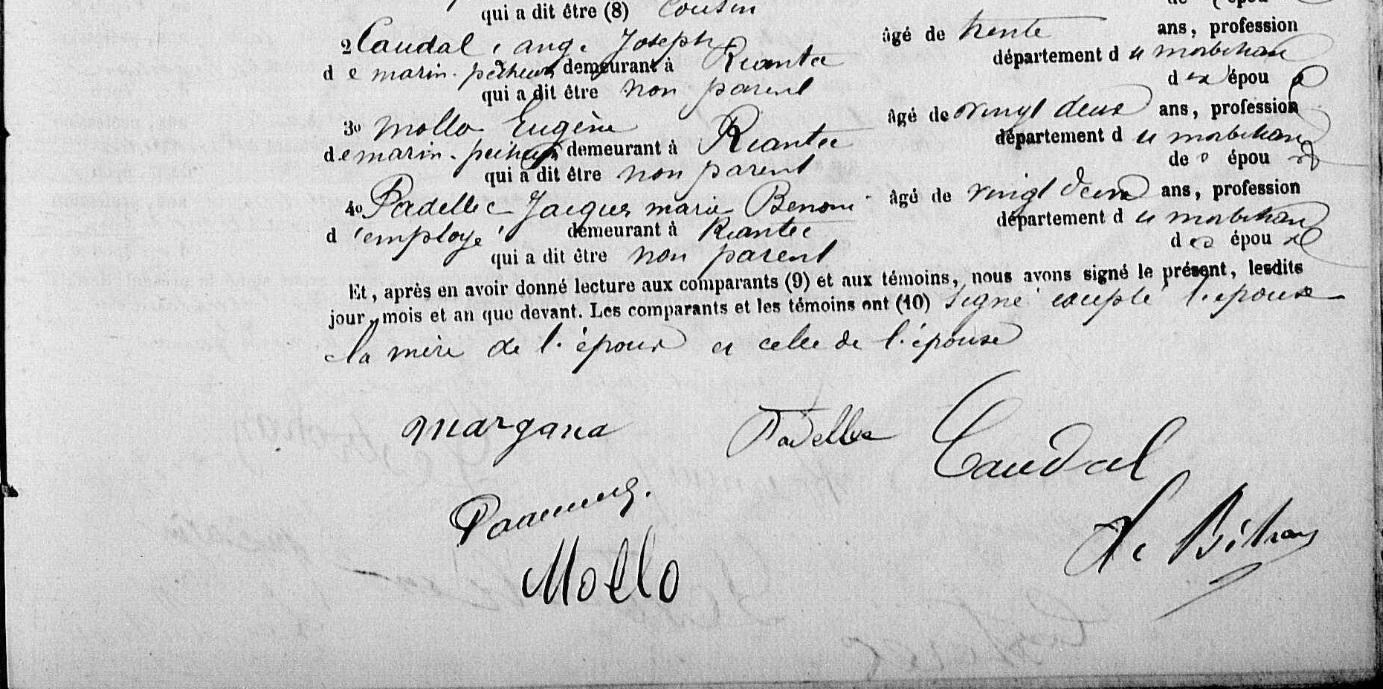 qui a dit être (8) Cousin
2 Caudal, ange Joseph âgé de trente ans, profession
de marin-pêcheur demeurant à Riantec département du morbihan
qui a dit être non parent des épou
3º Mollo Eugène âgé de vingt deux ans, profession
de marin-pêcheur demeurant à Riantec département du morbihan
qui a dit être non parent de épou
4º Padellec Jacques marie Benoni âgé de vingt deux ans, profession
d'employé demeurant à Riantec département du morbihan
qui a dit être non parent des épou
Et, après en avoir donné lecture aux comparants (9) et aux témoins, nous avons signé le présent, lesdits
jour, mois et an que devant. Les comparants et les témoins ont (10) signé excepté l'épouse
la mère de l'époux et celle de l'épouse
margana Padellec Caudal
Mollo